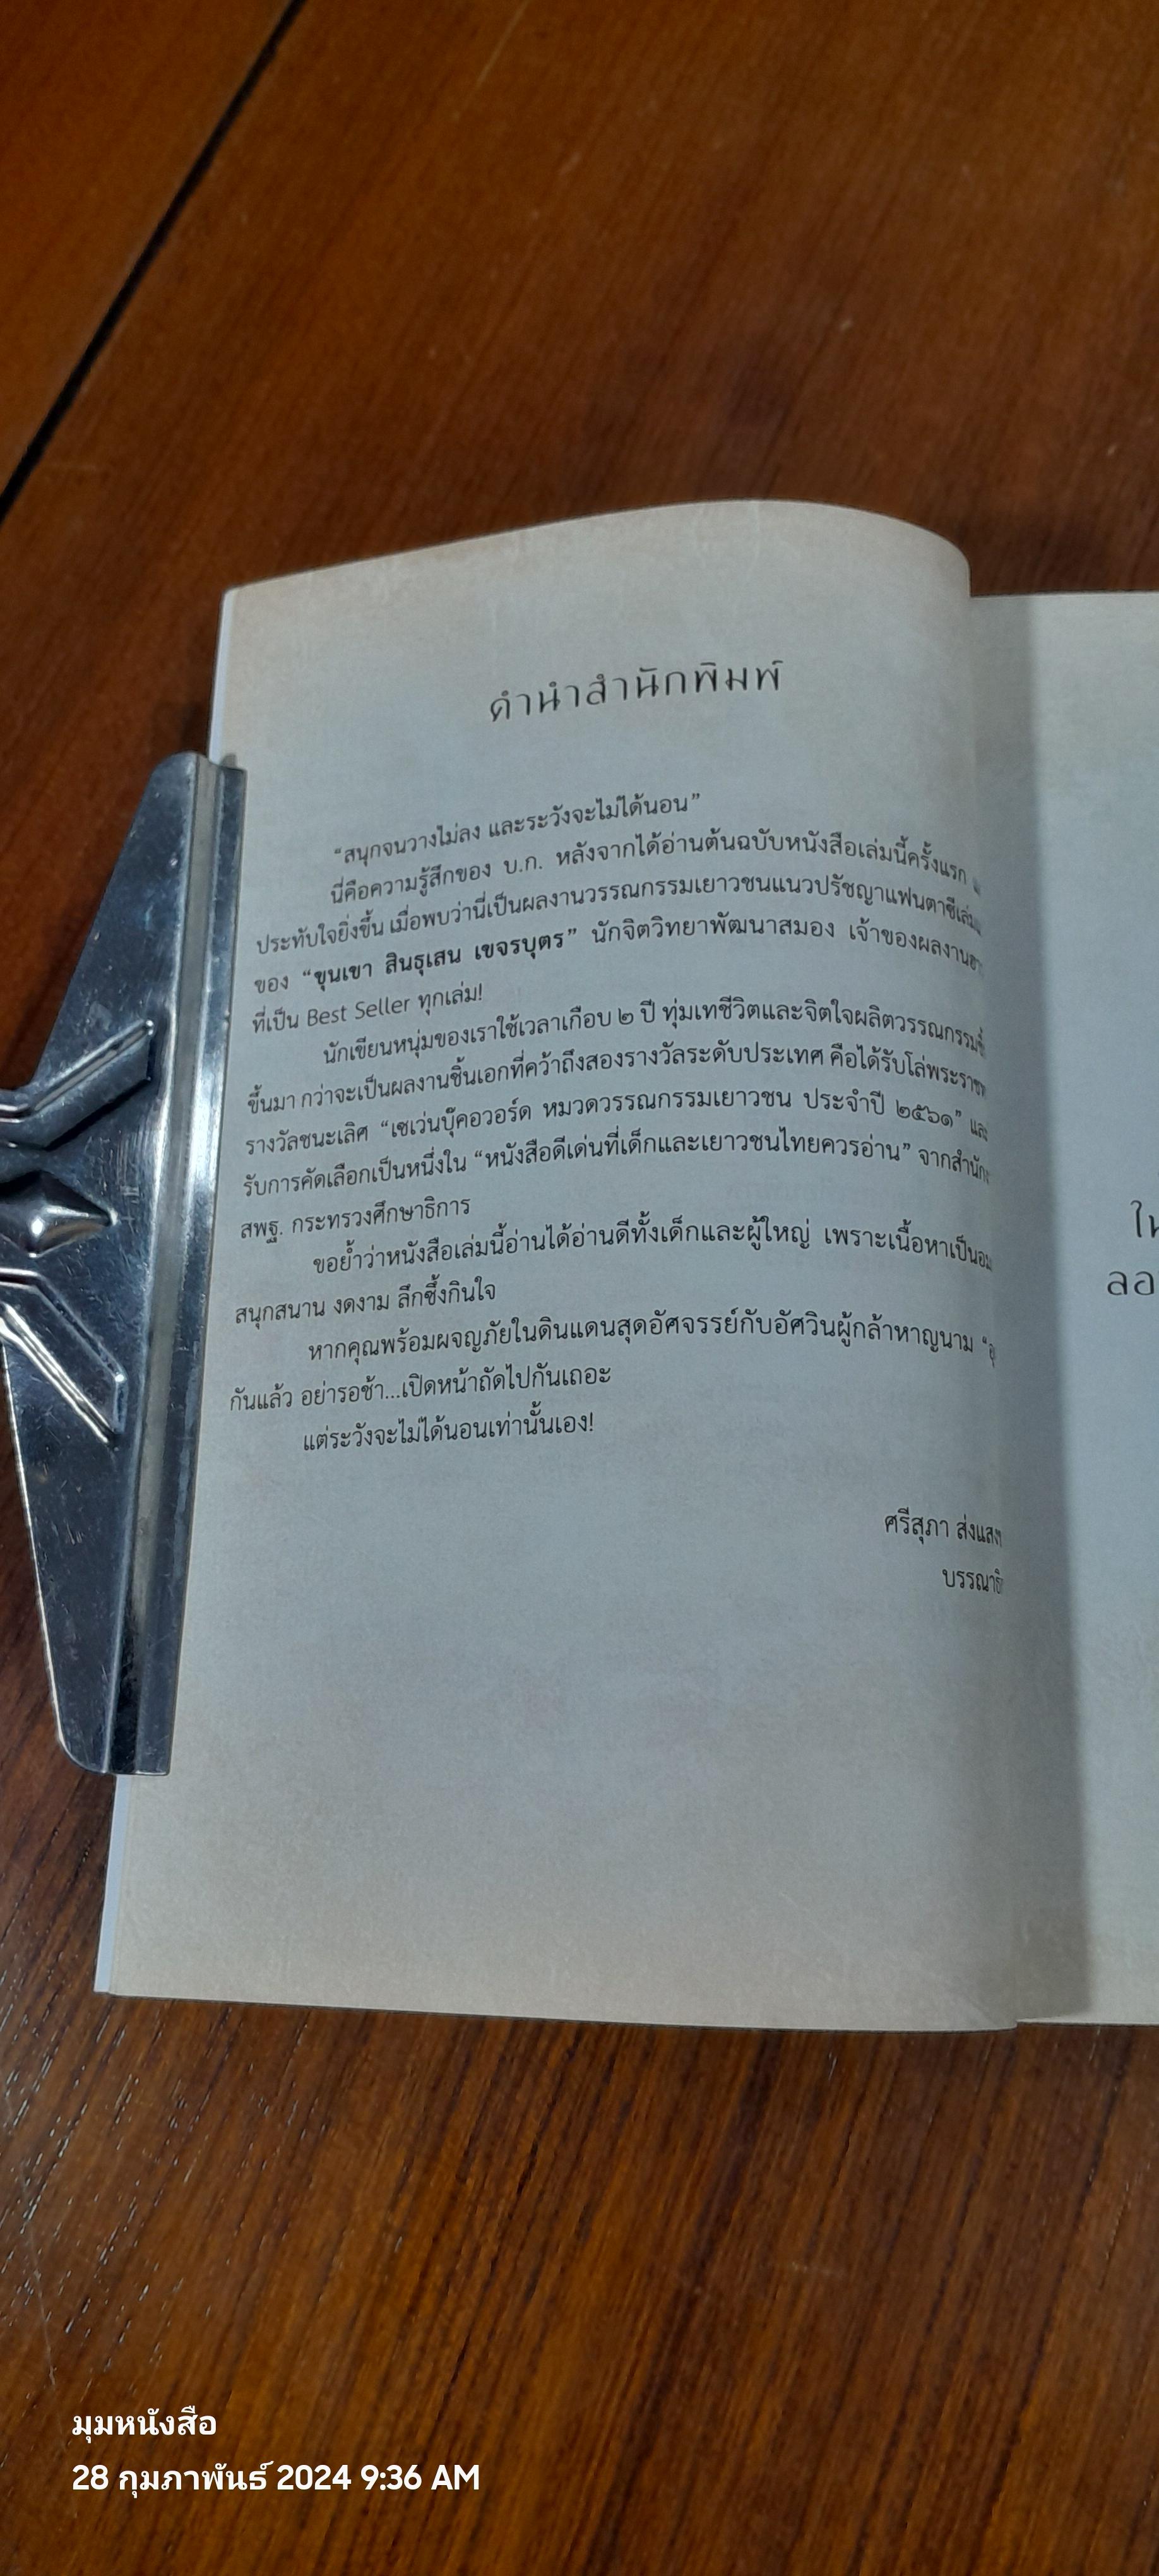 คำนำสำนักพิมพ์
“สนุกจนวางไม่ลง และระวังจะไม่ได้นอน”
นี่คือความรู้สึกของ บ.ก. หลังจากได้อ่านต้นฉบับหนังสือเล่มนี้ครั้งแรก
ประทับใจยิ่งขึ้น เมื่อพบว่านี่เป็นผลงานวรรณกรรมเยาวชนแนวปรัชญาแฟนตาซี
ของ “ขุนเขา สินธุเสน เขจรบุตร” นักจิตวิทยาพัฒนาสมอง เจ้าของผลงาน
ที่เป็น Best Seller ทุกเล่ม!
นักเขียนหนุ่มของเราใช้เวลาเกือบ ๒ ปี ทุ่มเทชีวิตและจิตใจผลิตวรรณกรรม
ขึ้นมา กว่าจะเป็นผลงานชิ้นเอกที่คว้าถึงสองรางวัลระดับประเทศ คือได้รับโล่
รางวัลชนะเลิศ “เซเว่นบุ๊คอวอร์ด หมวดวรรณกรรมเยาวชน ประจำปี ๒๕๖๑” และ
รับการคัดเลือกเป็นหนึ่งใน “หนังสือดีเด่นที่เด็กและเยาวชนไทยควรอ่าน” จาก
สพฐ. กระทรวงศึกษาธิการ
ขอย้ำว่าหนังสือเล่มนี้อ่านได้อ่านดีทั้งเด็กและผู้ใหญ่ เพราะเนื้อหาเป็น
สนุกสนาน งดงาม ลึกซึ้งกินใจ
หากคุณพร้อมผจญภัยในดินแดนสุดอัศจรรย์กับอัศวินผู้กล้าหาญนาม
กันแล้ว อย่ารอช้า...เปิดหน้าถัดไปกันเถอะ
แต่ระวังจะไม่ได้นอนเท่านั้นเอง!
ศรีสุภา
มุมหนังสือ
28 กุมภาพันธ์ 2024 9:36 AM